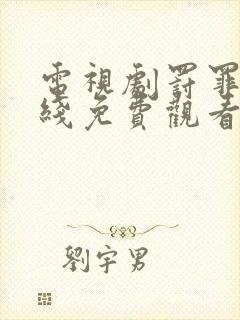 電視劇罰罪
綫免費觀看
劉宇男